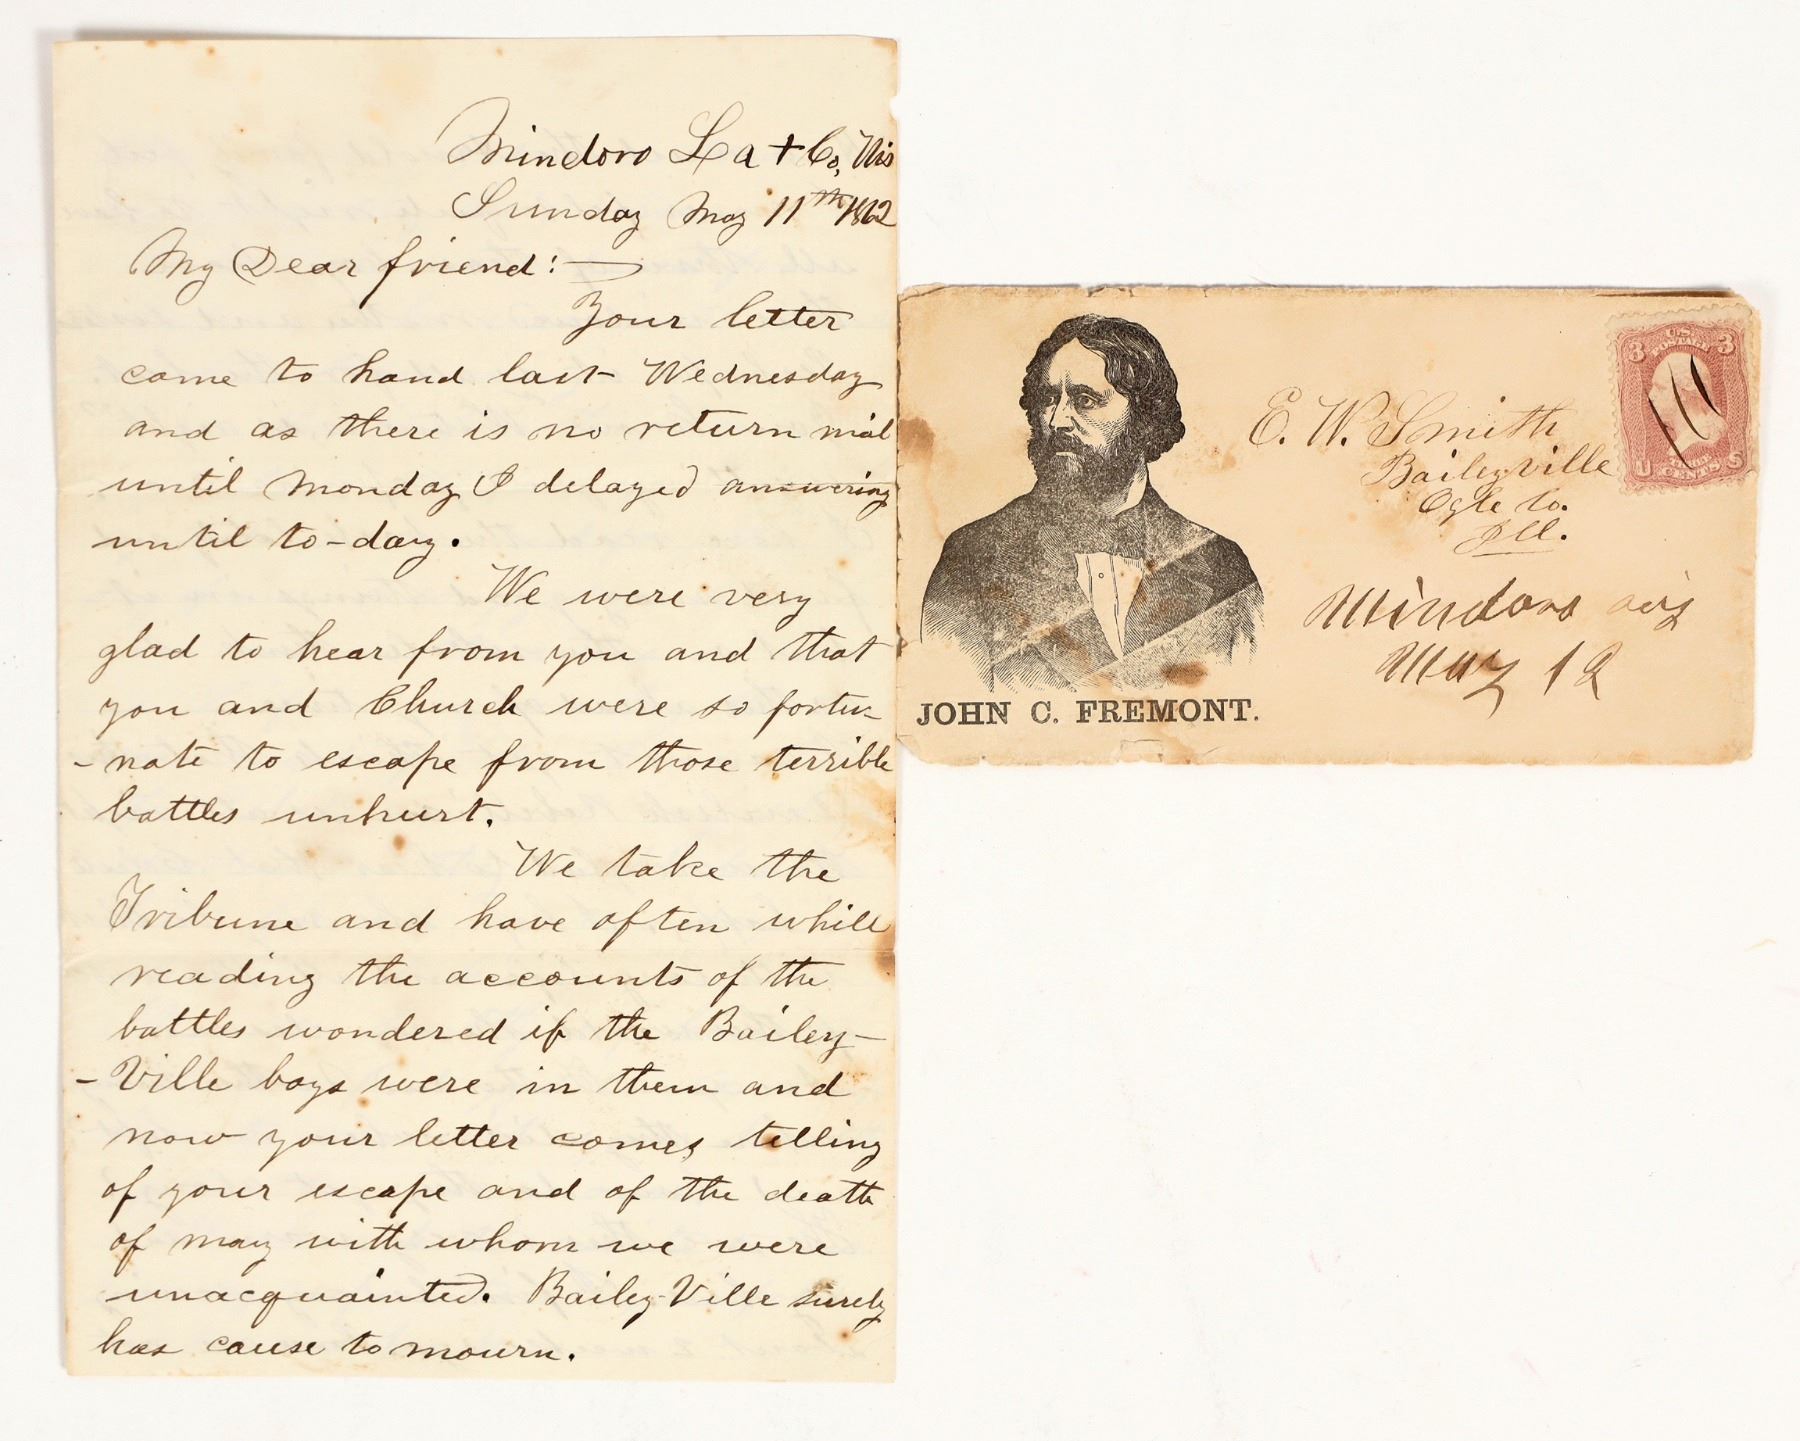 Mindoro La + Co, Wis
Sunday May 11th 1862
My Dear friend:
Your letter
came to hand last Wednesday
and as there is no return mial
until Monday I delayed answering
until to-day.
We were very
glad to hear from you and that
you and Church were so fortu-
-nate to escape from those terrible
battles unhurt.
We take the
Tribune and have often while
reading the accounts of the
battles wondered if the Bailey-
-Ville boys were in them and
now your letter comes telling
of your escape and of the death
of many with whom we were
unacquainted. Bailey-Ville surely
has cause to mourn.
JOHN C. FREMONT.
U.S.
POSTAGE
3 3
U S
THREE
CENTS
E. W. Smith
Baileyville
Ogle Co.
Ill.
Mindoro Wis
May 12